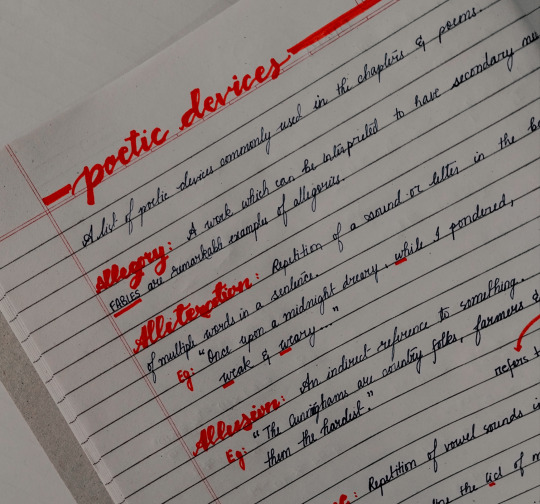 poetic devices
A list of poetic devices commonly used in the chapters & poems.
Allegory: A work which can be interpreted to have secondary
FABLES are remarkable example of allegories.
Alliteration: Repetition of a sound or letter in the
of multiple words in a sentence.
Eg: "Once upon a midnight dreary, while I pondered,
weak & weary..."
Allusion: An indirect reference to something.
Eg: "The Cunninghams are country folks, farmers &
them the hardest."
refers
Repetition of vowel sounds
the
of